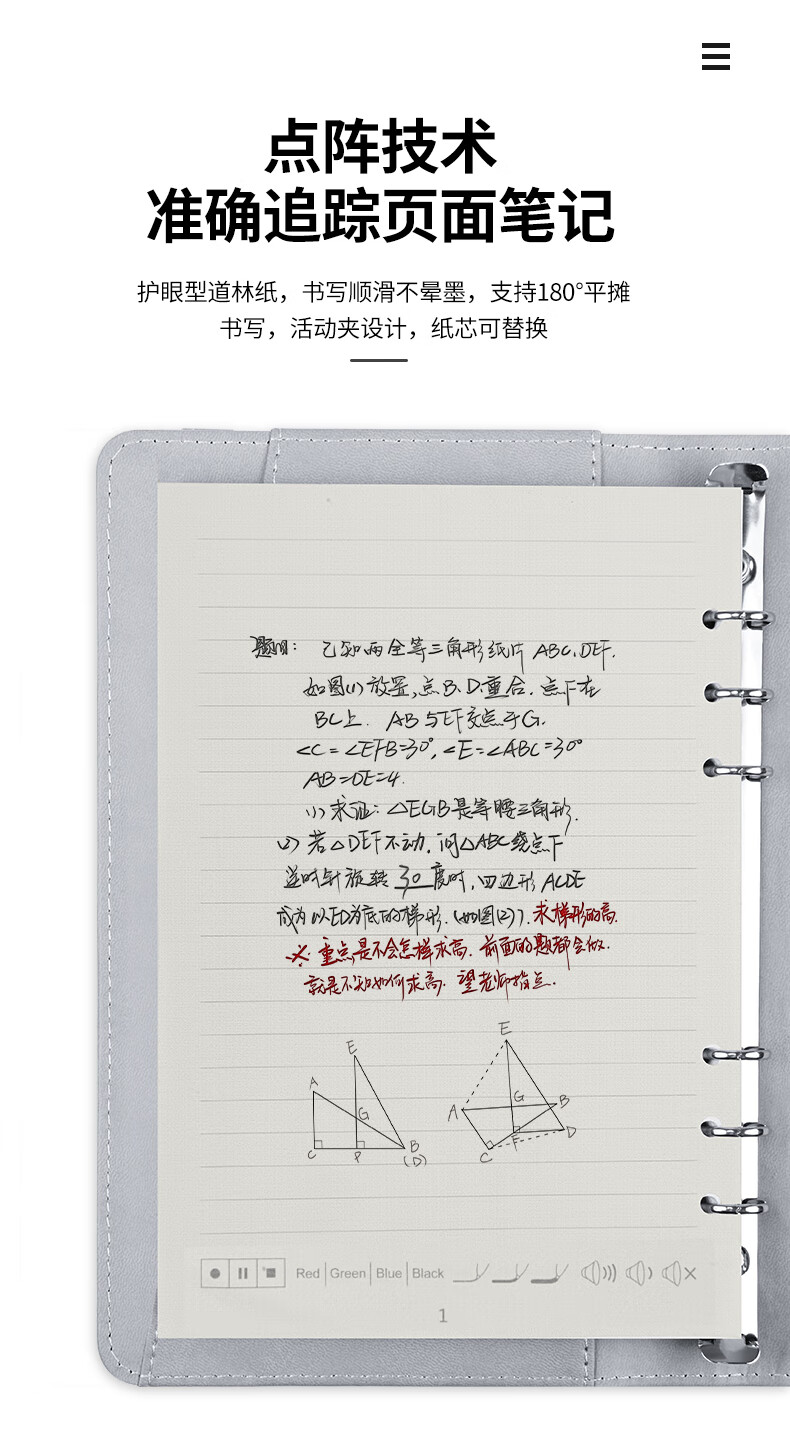 点阵技术
准确追踪页面笔记
护眼型道林纸，书写顺滑不晕墨，支持180°平摊
书写，活动夹设计，纸芯可替换
题目： 已知两全等三角形纸片 ABC、DEF.
如图(1)放置,点B、D重合. 点F在
BC上. AB与EF交点于G.
∠C=∠EFB=30°,∠E=∠ABC=30°
AB=DE=4.
(1)求证: △EGB是等腰三角形.
(2)若△DEF不动,问△ABC绕点F
逆时针旋转30度时,四边形ACDE
成为以ED为底的梯形.(如图(2)).求梯形的高.
※:重点是不会怎样求高. 前面的题都会做.
就是不知如何求高. 望老师指点.
E
A
G
C
F
B
(D)
E
A
G
B
F
D
C
Red | Green | Blue | Black
1